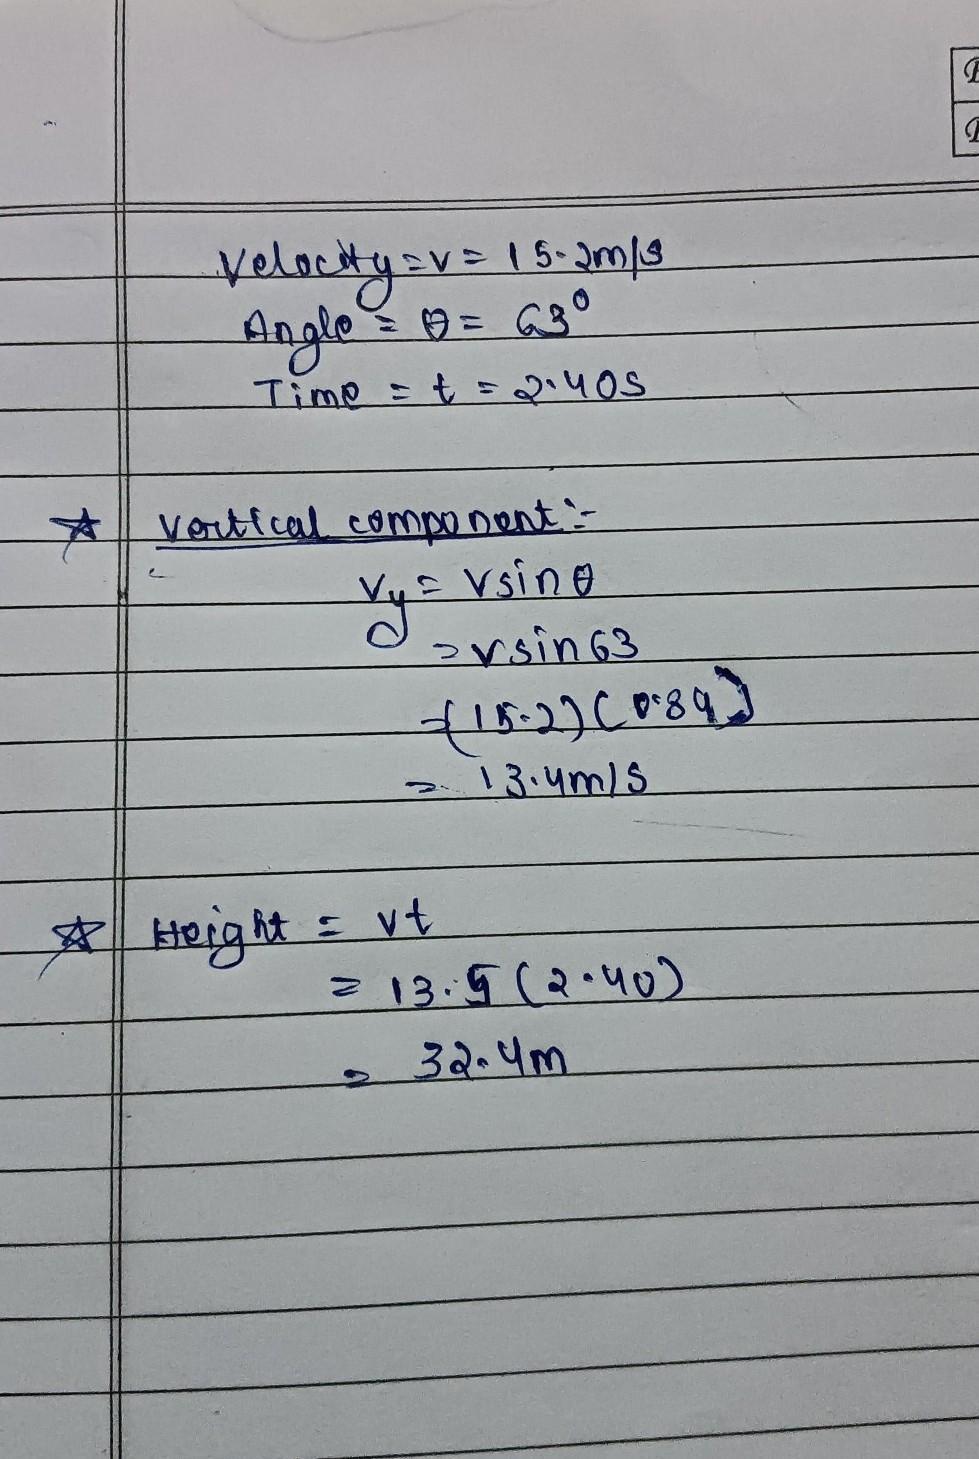 Velocity = v = 15.2m/s
Angle = θ = 63°
Time = t = 2.40s
☆ Vertical component :-
Vy = vsinθ
= vsin63
= (15.2) (0.89)
= 13.4m/s
☆ Height = vt
= 13.5 (2.40)
= 32.4m